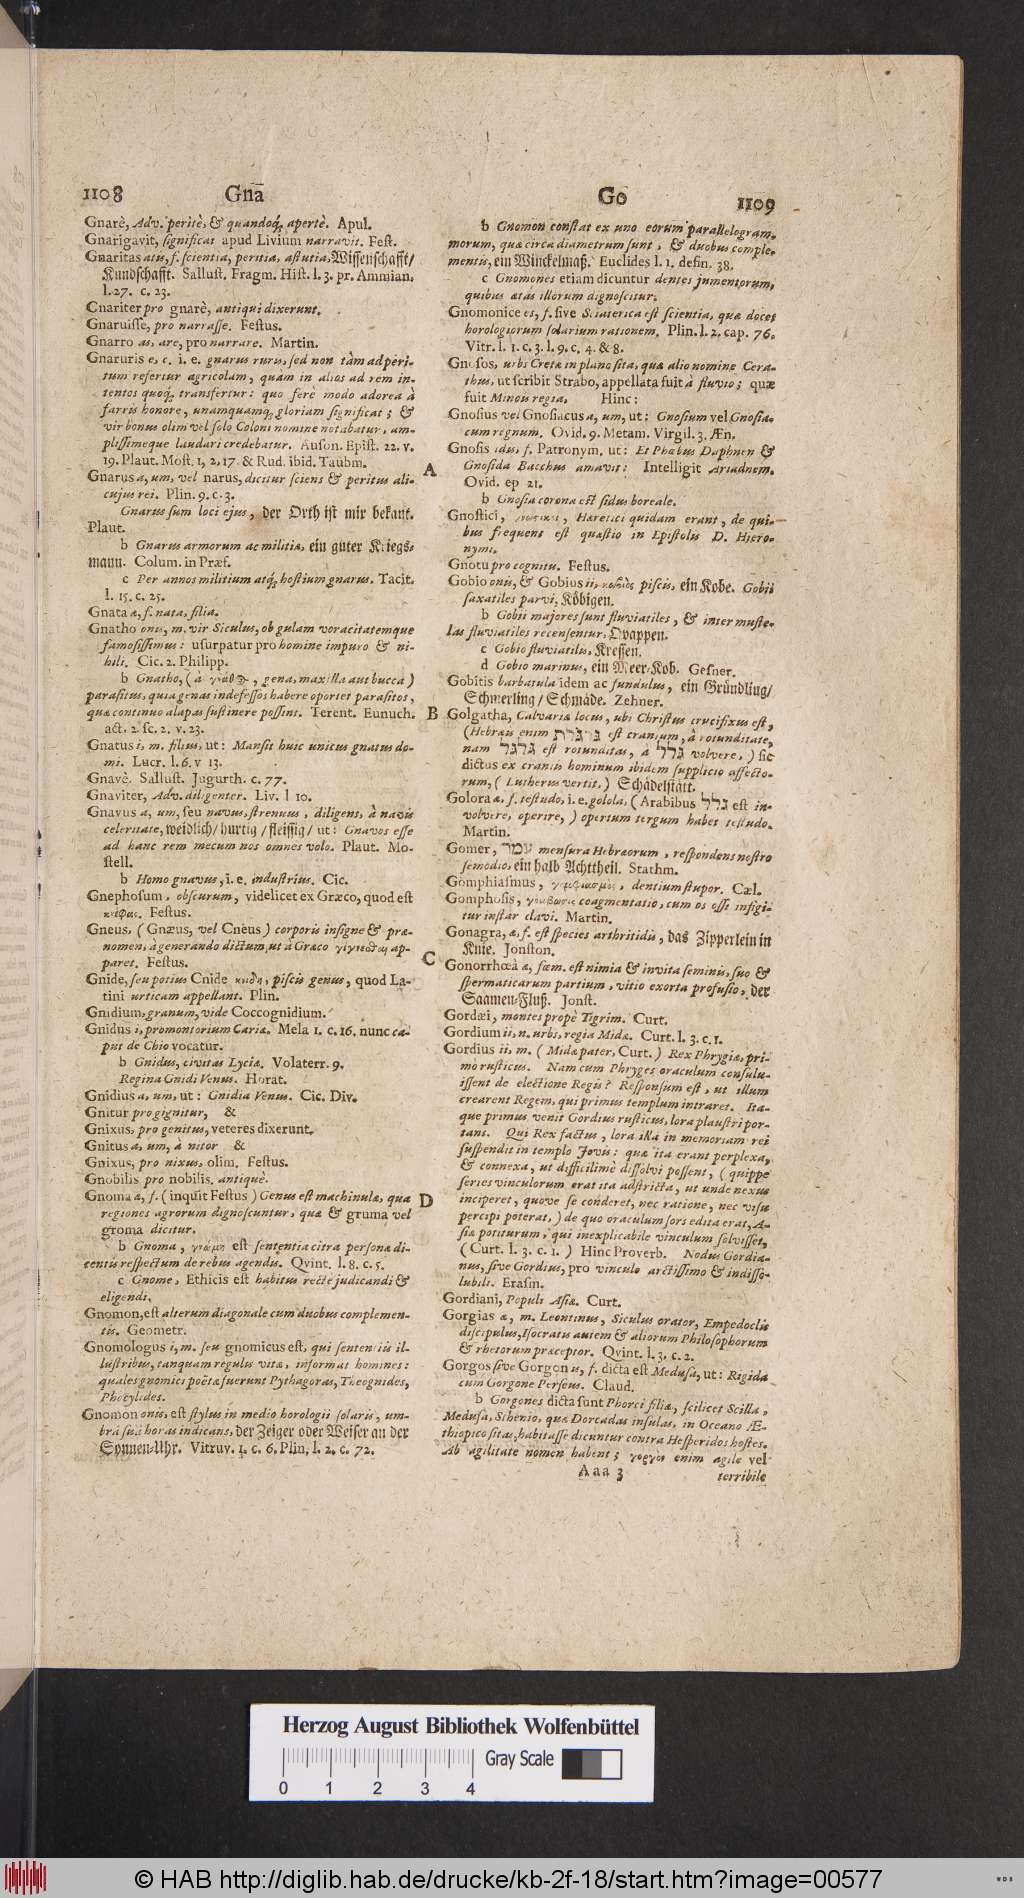 1108 Gnā
Gnarè, Adv. peritè, & quandoq́; apertè. Apul.
Gnarigavit, significat apud Livium narravit. Fest.
Gnaritas atis, f. scientia, peritia, astutia, Wissenschafft/
Kundschafft. Sallust. Fragm. Hist. l. 3. pr. Ammian.
l. 27. c. 23.
Gnariter pro gnarè, antiqui dixerunt.
Gnaruisse, pro narrasse. Festus.
Gnarro as, are, pro narrare. Martin.
Gnaruris e, c. i. e. gnarus ruris, sed non tàm ad peri-
tum refertur agricolam, quàm in alios ad rem in-
tentos quoq́; transfertur: quo ferè modo adorea à
farris honore, unamquamq́; gloriam significat; &
vir bonus olim vel solo Coloni nomine notabatur, am-
plissimeque laudari credebatur. Auson. Epist. 22. v.
19. Plaut. Most. 1, 2, 17. & Rud. ibid. Taubm.
Gnarus a, um, vel narus, dicitur sciens & peritus ali-
cujus rei. Plin. 9. c. 3.
Gnarus sum loci ejus, der Orth ist mir bekant.
Plaut.
b Gnarus armorum ac militiæ, ein guter Kriegs-
mann. Colum. in Præf.
c Per annos militium atq́; hostium gnarus. Tacit.
l. 15. c. 25.
Gnata æ, f. nata, filia.
Gnatho onis, m. vir Siculus, ob gulam voracitatemque
famosissimus: usurpatur pro homine impuro & ni-
hili. Cic. 2. Philipp.
b Gnatho, (à γνάθος, gena, maxilla aut bucca)
parasitus, quia genas indefessos habere oportet parasitos,
quæ continuo alapas sustinere possint. Terent. Eunuch.
act. 2. sc. 2. v. 23.
Gnatus i, m. filius, ut: Mansit huic unicus gnatus do-
mi. Lucr. l. 6. v 13.
Gnavè. Sallust. Jugurth. c. 77.
Gnaviter, Adv. diligenter. Liv. l 10.
Gnavus a, um, seu navus, strenuus, diligens, à navis
celeritate, weidlich/ hurtig / fleissig/ ut: Gnavos esse
ad hanc rem mecum nos omnes volo. Plaut. Mo-
stell.
b Homo gnavus, i. e. industrius. Cic.
Gnephosum, obscurum, videlicet ex Græco, quod est
κνέφας. Festus.
Gneus, (Gnæus, vel Cnèus) corporis insigne & præ-
nomen, à generando dictum, ut à Græco γίγνεσθαι ap-
paret. Festus.
Gnide, seu potius Cnide κνίδη, piscis genus, quod La-
tini urticam appellant. Plin.
Gnidium, granum, vide Coccognidium.
Gnidus i, promontorium Cariæ. Mela 1. c. 16. nunc ca-
put de Chio vocatur.
b Gnidus, civitas Lyciæ. Volaterr. 9.
Regina Gnidi Venus. Horat.
Gnidius a, um, ut: Gnidia Venus. Cic. Div.
Gnitur pro gignitur, &
Gnixus, pro genitus, veteres dixerunt.
Gnitus a, um, à nitor &
Gnixus, pro nixus, olim. Festus.
Gnobilis pro nobilis, antiquè.
Gnoma æ, f. (inquit Festus) Genus est machinulæ, qua
regiones agrorum dignoscuntur, quæ & gruma vel
groma dicitur.
b Gnoma, γνώμη est sententia citra personæ di-
centis respectum de rebus agendis. Qvint. l. 8. c. 5.
c Gnome, Ethicis est habitus rectè judicandi &
eligendi.
Gnomon, est alterum diagonale cum duobus complemen-
tis. Geometr.
Gnomologus i, m. seu gnomicus est, qui sententiis il-
lustribus, tanquam regulis vitæ, informat homines:
quales gnomici poëtæ fuerunt Pythagoras, Theognides,
Phocylides.
Gnomon onis, est stylus in medio horologii solaris, um-
brâ suâ horas indicans, der Zeiger oder Weiser an der
Sonnen-Uhr. Vitruv. 1. c. 6. Plin. l. 2. c. 72.
A
B
C
D
Go 1109
b Gnomon constat ex uno eorum parallelogram-
morum, quæ circa diametrum sunt, & duobus comple-
mentis, ein Winckelmaß. Euclides l. 1. defin. 38.
c Gnomones etiam dicuntur dentes jumentorum,
quibus ætas illorum dignoscitur.
Gnomonice es, f. sive Sciaterica est scientia, quæ docet
horologiorum solarium rationem. Plin. l. 2. cap. 76.
Vitr. l. 1. c. 3. l. 9. c. 4. & 8.
Gnosos, urbs Cretæ in plano sita, quæ alio nomine Cera-
thus, ut scribit Strabo, appellata fuit à fluvio; quæ
fuit Minoū regia. Hinc:
Gnosius vel Gnosiacus a, um, ut: Gnosium vel Gnosia-
cum regnum. Ovid. 9. Metam. Virgil. 3. Æn.
Gnosis idis, f. Patronym. ut: Et Phœbus Daphnen &
Gnosida Bacchus amavit: Intelligit Ariadnem.
Ovid. ep 21.
b Gnosia corona est sidus boreale.
Gnostici, γνωστικοί, Hæretici quidam erant, de qui-
bus frequens est quæstio in Epistolis D. Hiero-
nymi.
Gnotu pro cognitu. Festus.
Gobio onis, & Gobius ii, κωβιός piscis, ein Kobe. Gobii
saxatiles parvi, Köbigen.
b Gobii majores sunt fluviatiles, & inter muste-
las fluviatiles recensentur, Qvappen.
c Gobio fluviatilis, Kressen.
d Gobio marinus, ein Meer-Kob. Gesner.
Gobitis barbatula idem ac fundulus, ein Gründling/
Schmerling / Schmäde. Zehner.
Golgatha, Calvariæ locus, ubi Christus crucifixus est,
(Hebræis enim גלגלת est cranium, à rotunditate,
nam גלגל est rotunditas, à גלל volvere,) sic
dictus ex craniis hominum ibidem supplicio affecto-
rum, (Lutherus vertit,) Schädelstätt.
Golora æ, f. testudo, i. e. golola, (Arabibus גלל est in-
volvere, operire,) opertum tergum habet testudo.
Martin.
Gomer, עמר mensura Hebræorum, respondens nostro
semodio, ein halb Achttheil. Stathm.
Gomphiasmus, γομφιασμός, dentium stupor. Cæl.
Gomphosis, γόμφωσις coagmentatio, cum os ossi infigi-
tur instar clavi. Martin.
Gonagra, æ, f. est species arthritidis, das Zipperlein in
Knie. Jonston.
Gonorrhœà æ, fœm. est nimia & invita seminis, suo &
spermaticarum partium, vitio exorta profusio, der
Saamen-Fluß. Jonst.
Gordæi, montes propè Tigrim. Curt.
Gordium ii, n. urbs, regia Midæ. Curt. l. 3. c. 1.
Gordius ii, m. (Midæ pater, Curt.) Rex Phrygiæ, pri-
mo rusticus. Nam cum Phryges oraculum consulu-
issent de electione Regis? Responsum est, ut illum
crearent Regem, qui primus templum intraret. Ita-
que primus venit Gordius rusticus, lora plaustri por-
tans. Qui Rex factus, lora illa in memoriam rei
suspendit in templo Jovis: quæ ita erant perplexa,
& connexa, ut difficilimè dissolvi possent, (quippe
series vinculorum erat ita adstricta, ut unde nexus
inciperet, quove se conderet, nec ratione, nec visu
percipi poterat,) de quo oraculum sors edita erat, A-
siæ potiturum, qui inexplicabile vinculum solvisset,
(Curt. l. 3. c. 1.) Hinc Proverb. Nodus Gordia-
nus, sive Gordius, pro vinculo arctissimo & indisso-
lubili. Erasm.
Gordiani, Populi Asiæ. Curt.
Gorgias æ, m. Leontinus, Siculus orator, Empedoclis
discipulus, Isocratis autem & aliorum Philosophorum
& rhetorum præceptor. Qvint. l. 3. c. 2.
Gorgos sive Gorgon is, f. dicta est Medusa, ut: Rigida
cum Gorgone Perseus. Claud.
b Gorgones dicta sunt Phorci filiæ, scilicet Scilla,
Medusa, Sthenio, quæ Dorcadas insulas, in Oceano Æ-
thiopico sitas, habitasse dicuntur contra Hesperidos hostes.
Ab agilitate nomen habent; γοργόν enim agile vel
Aaa 3 terribile
Herzog August Bibliothek Wolfenbüttel
Gray Scale
0 1 2 3 4
© HAB http://diglib.hab.de/drucke/kb-2f-18/start.htm?image=00577